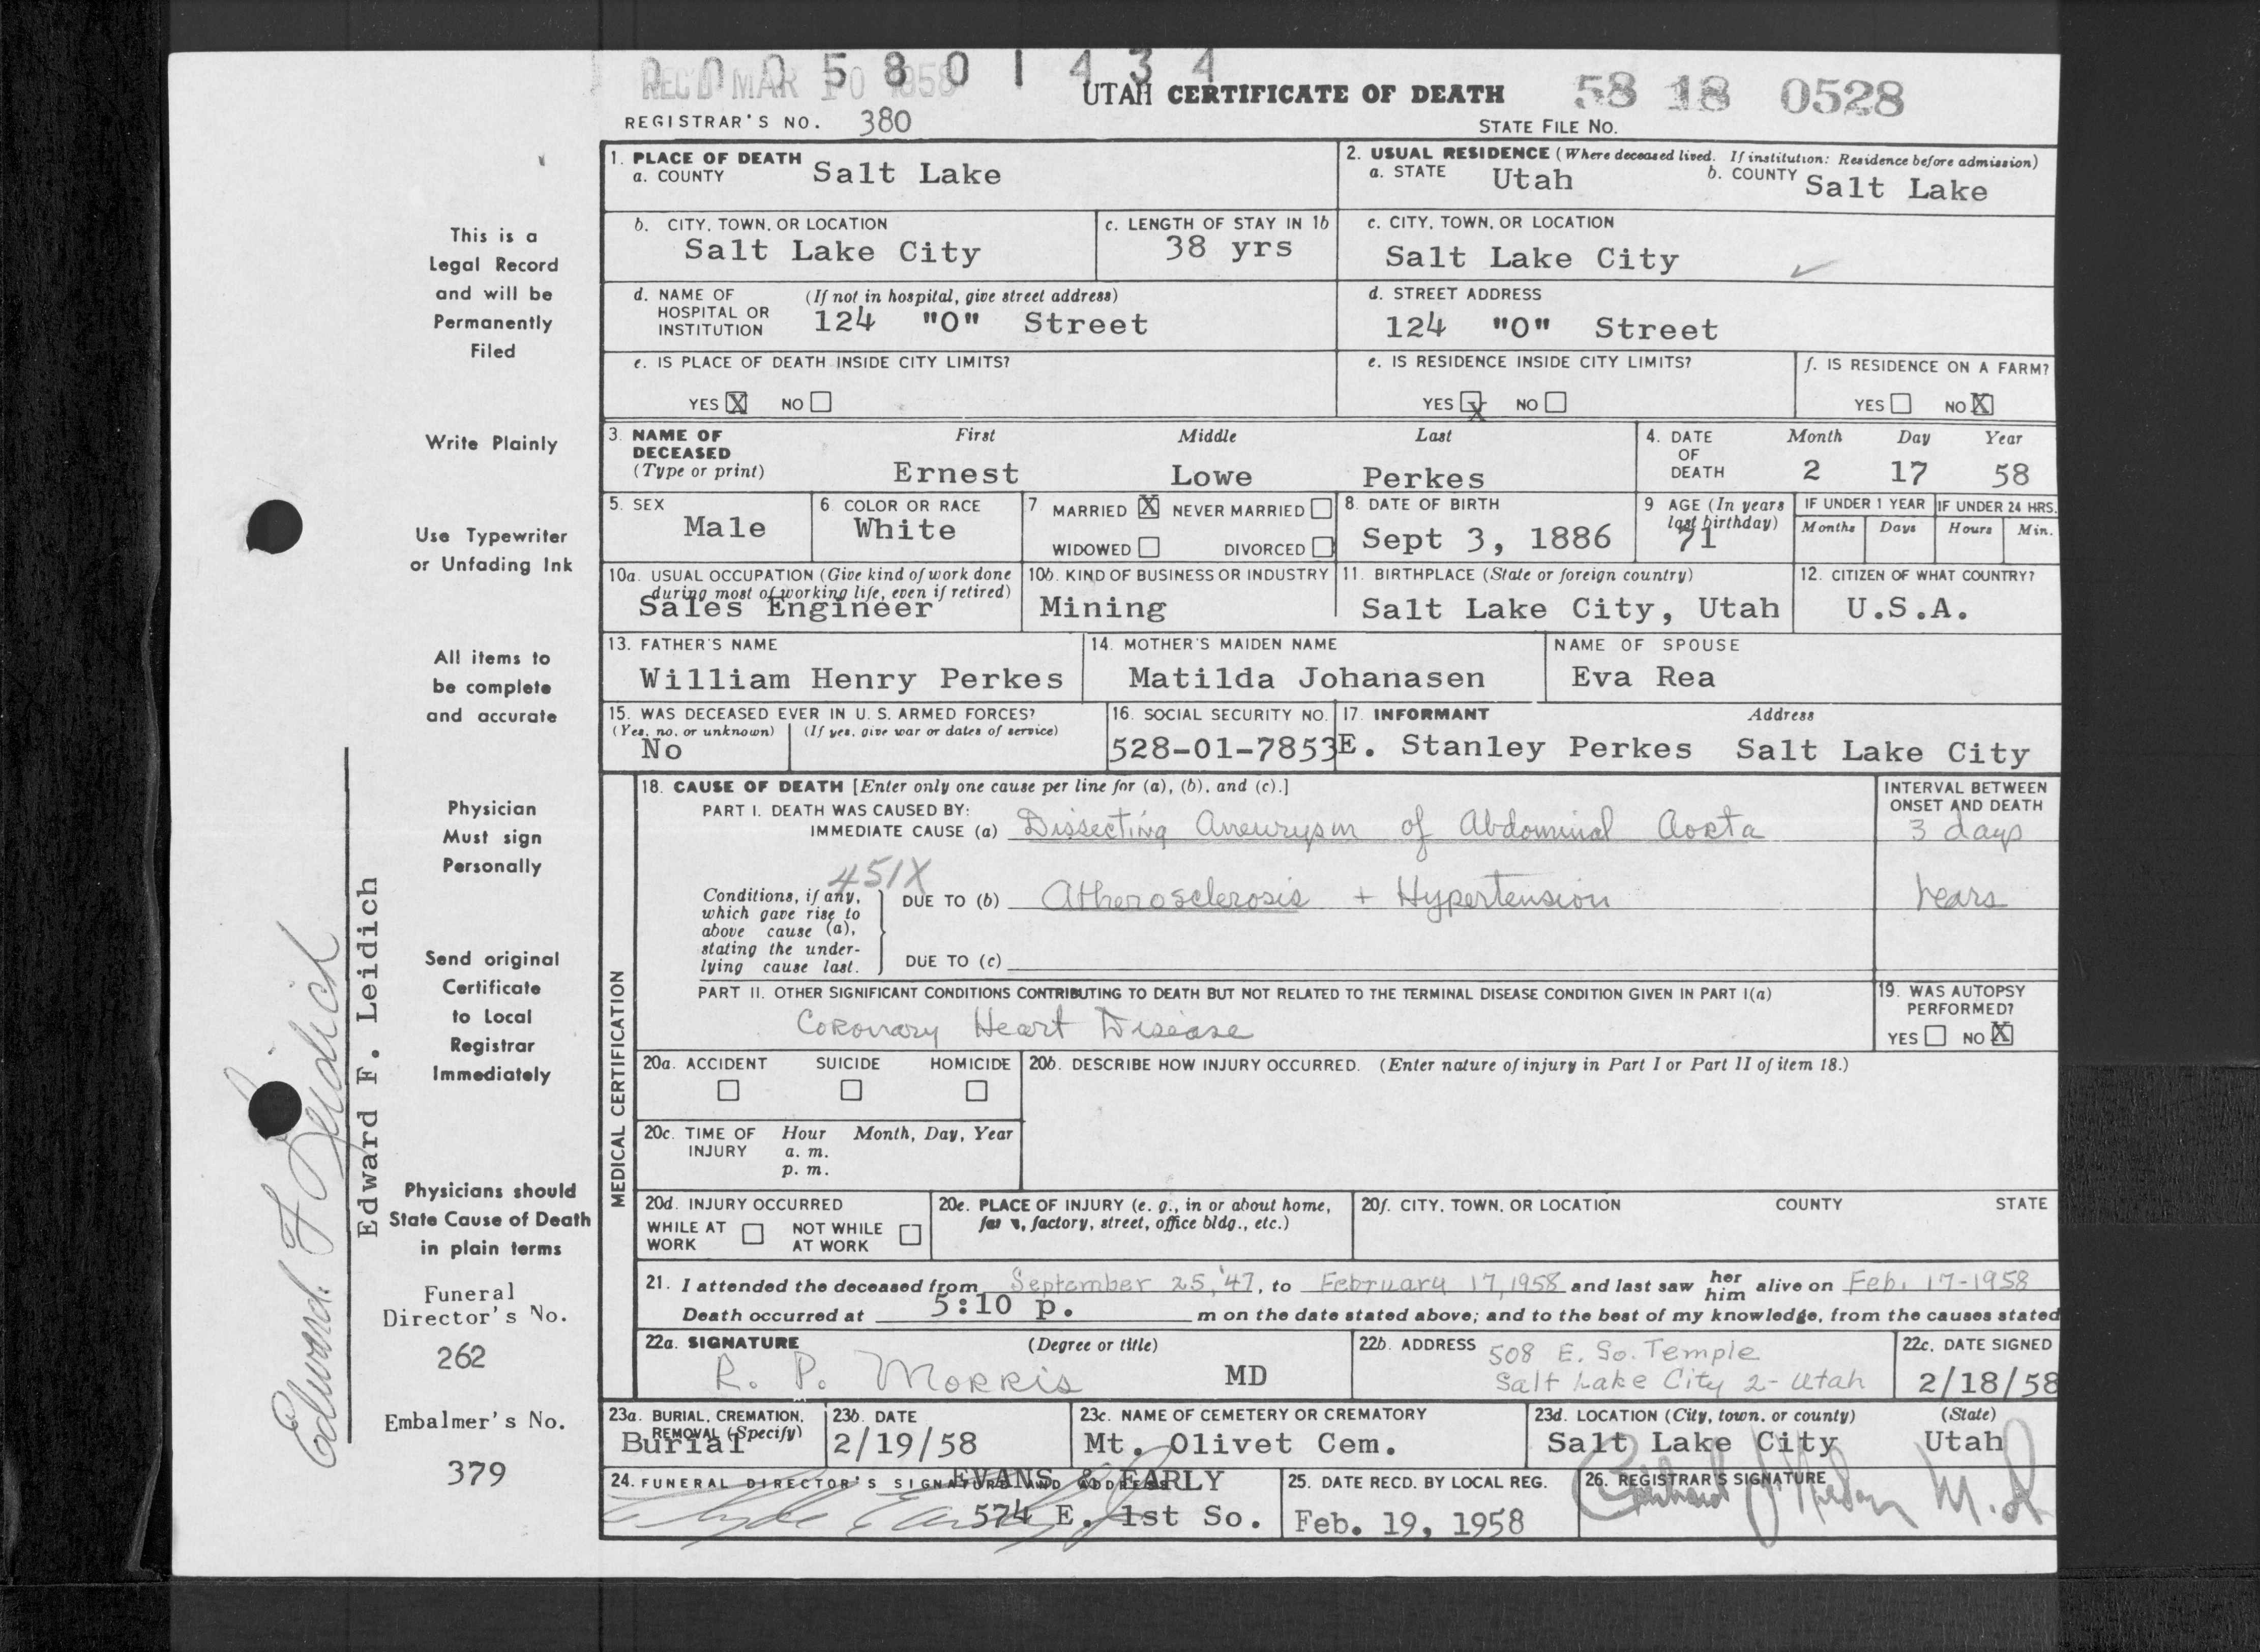 0 0 0 5 8 0 1 4 3 4
REC'D MAR 10 1958
UTAH CERTIFICATE OF DEATH
58 18 0528
REGISTRAR'S NO. 380
STATE FILE NO.
1. PLACE OF DEATH
a. COUNTY Salt Lake
2. USUAL RESIDENCE (Where deceased lived. If institution: Residence before admission)
a. STATE Utah b. COUNTY Salt Lake
b. CITY, TOWN, OR LOCATION
Salt Lake City
c. LENGTH OF STAY IN 1b
38 yrs
c. CITY, TOWN, OR LOCATION
Salt Lake City
d. NAME OF HOSPITAL OR INSTITUTION (If not in hospital, give street address)
124 "O" Street
d. STREET ADDRESS
124 "O" Street
e. IS PLACE OF DEATH INSIDE CITY LIMITS?
YES X NO
e. IS RESIDENCE INSIDE CITY LIMITS?
YES X NO
f. IS RESIDENCE ON A FARM?
YES NO X
3. NAME OF DECEASED (Type or print)
First Middle Last
Ernest Lowe Perkes
4. DATE OF DEATH
Month Day Year
2 17 58
5. SEX
Male
6. COLOR OR RACE
White
7 MARRIED X NEVER MARRIED
WIDOWED DIVORCED
8. DATE OF BIRTH
Sept 3, 1886
9 AGE (In years last birthday)
71
IF UNDER 1 YEAR
Months Days
IF UNDER 24 HRS.
Hours Min.
10a. USUAL OCCUPATION (Give kind of work done during most of working life, even if retired)
Sales Engineer
10b. KIND OF BUSINESS OR INDUSTRY
Mining
11. BIRTHPLACE (State or foreign country)
Salt Lake City, Utah
12. CITIZEN OF WHAT COUNTRY?
U.S.A.
13. FATHER'S NAME
William Henry Perkes
14. MOTHER'S MAIDEN NAME
Matilda Johanasen
NAME OF SPOUSE
Eva Rea
15. WAS DECEASED EVER IN U. S. ARMED FORCES?
(Yes, no, or unknown) (If yes, give war or dates of service)
No
16. SOCIAL SECURITY NO.
528-01-7853
17. INFORMANT Address
E. Stanley Perkes Salt Lake City
MEDICAL CERTIFICATION
18. CAUSE OF DEATH [Enter only one cause per line for (a), (b), and (c).]
INTERVAL BETWEEN ONSET AND DEATH
PART I. DEATH WAS CAUSED BY:
IMMEDIATE CAUSE (a) Dissecting Aneurysm of Abdominal Aorta 3 days
451X
Conditions, if any, which gave rise to above cause (a), stating the underlying cause last.
DUE TO (b) Atherosclerosis + Hypertension Years
DUE TO (c)
PART II. OTHER SIGNIFICANT CONDITIONS CONTRIBUTING TO DEATH BUT NOT RELATED TO THE TERMINAL DISEASE CONDITION GIVEN IN PART I(a)
Coronary Heart Disease
19. WAS AUTOPSY PERFORMED?
YES NO X
20a. ACCIDENT SUICIDE HOMICIDE
20b. DESCRIBE HOW INJURY OCCURRED. (Enter nature of injury in Part I or Part II of item 18.)
20c. TIME OF INJURY Hour Month, Day, Year
a. m.
p. m.
20d. INJURY OCCURRED
WHILE AT WORK NOT WHILE AT WORK
20e. PLACE OF INJURY (e. g., in or about home, farm, factory, street, office bldg., etc.)
20f. CITY, TOWN, OR LOCATION COUNTY STATE
21. I attended the deceased from September 25, '47, to February 17, 1958 and last saw her him alive on Feb. 17-1958
Death occurred at 5:10 p. m on the date stated above; and to the best of my knowledge, from the causes stated
22a. SIGNATURE (Degree or title)
R. P. Morris MD
22b. ADDRESS 508 E. So. Temple
Salt Lake City 2- Utah
22c. DATE SIGNED
2/18/58
23a. BURIAL, CREMATION, REMOVAL (Specify)
Burial
23b. DATE
2/19/58
23c. NAME OF CEMETERY OR CREMATORY
Mt. Olivet Cem.
23d. LOCATION (City, town, or county) (State)
Salt Lake City Utah
24. FUNERAL DIRECTOR'S SIGNATURE AND ADDRESS
EVANS & EARLY
574 E. 1st So.
25. DATE RECD. BY LOCAL REG.
Feb. 19, 1958
26. REGISTRAR'S SIGNATURE
M.D.
This is a
Legal Record
and will be
Permanently
Filed
Write Plainly
Use Typewriter
or Unfading Ink
All items to
be complete
and accurate
Physician
Must sign
Personally
Send original
Certificate
to Local
Registrar
Immediately
Physicians should
State Cause of Death
in plain terms
Funeral
Director's No.
262
Embalmer's No.
379
Edward F Leidich
Edward F. Leidich